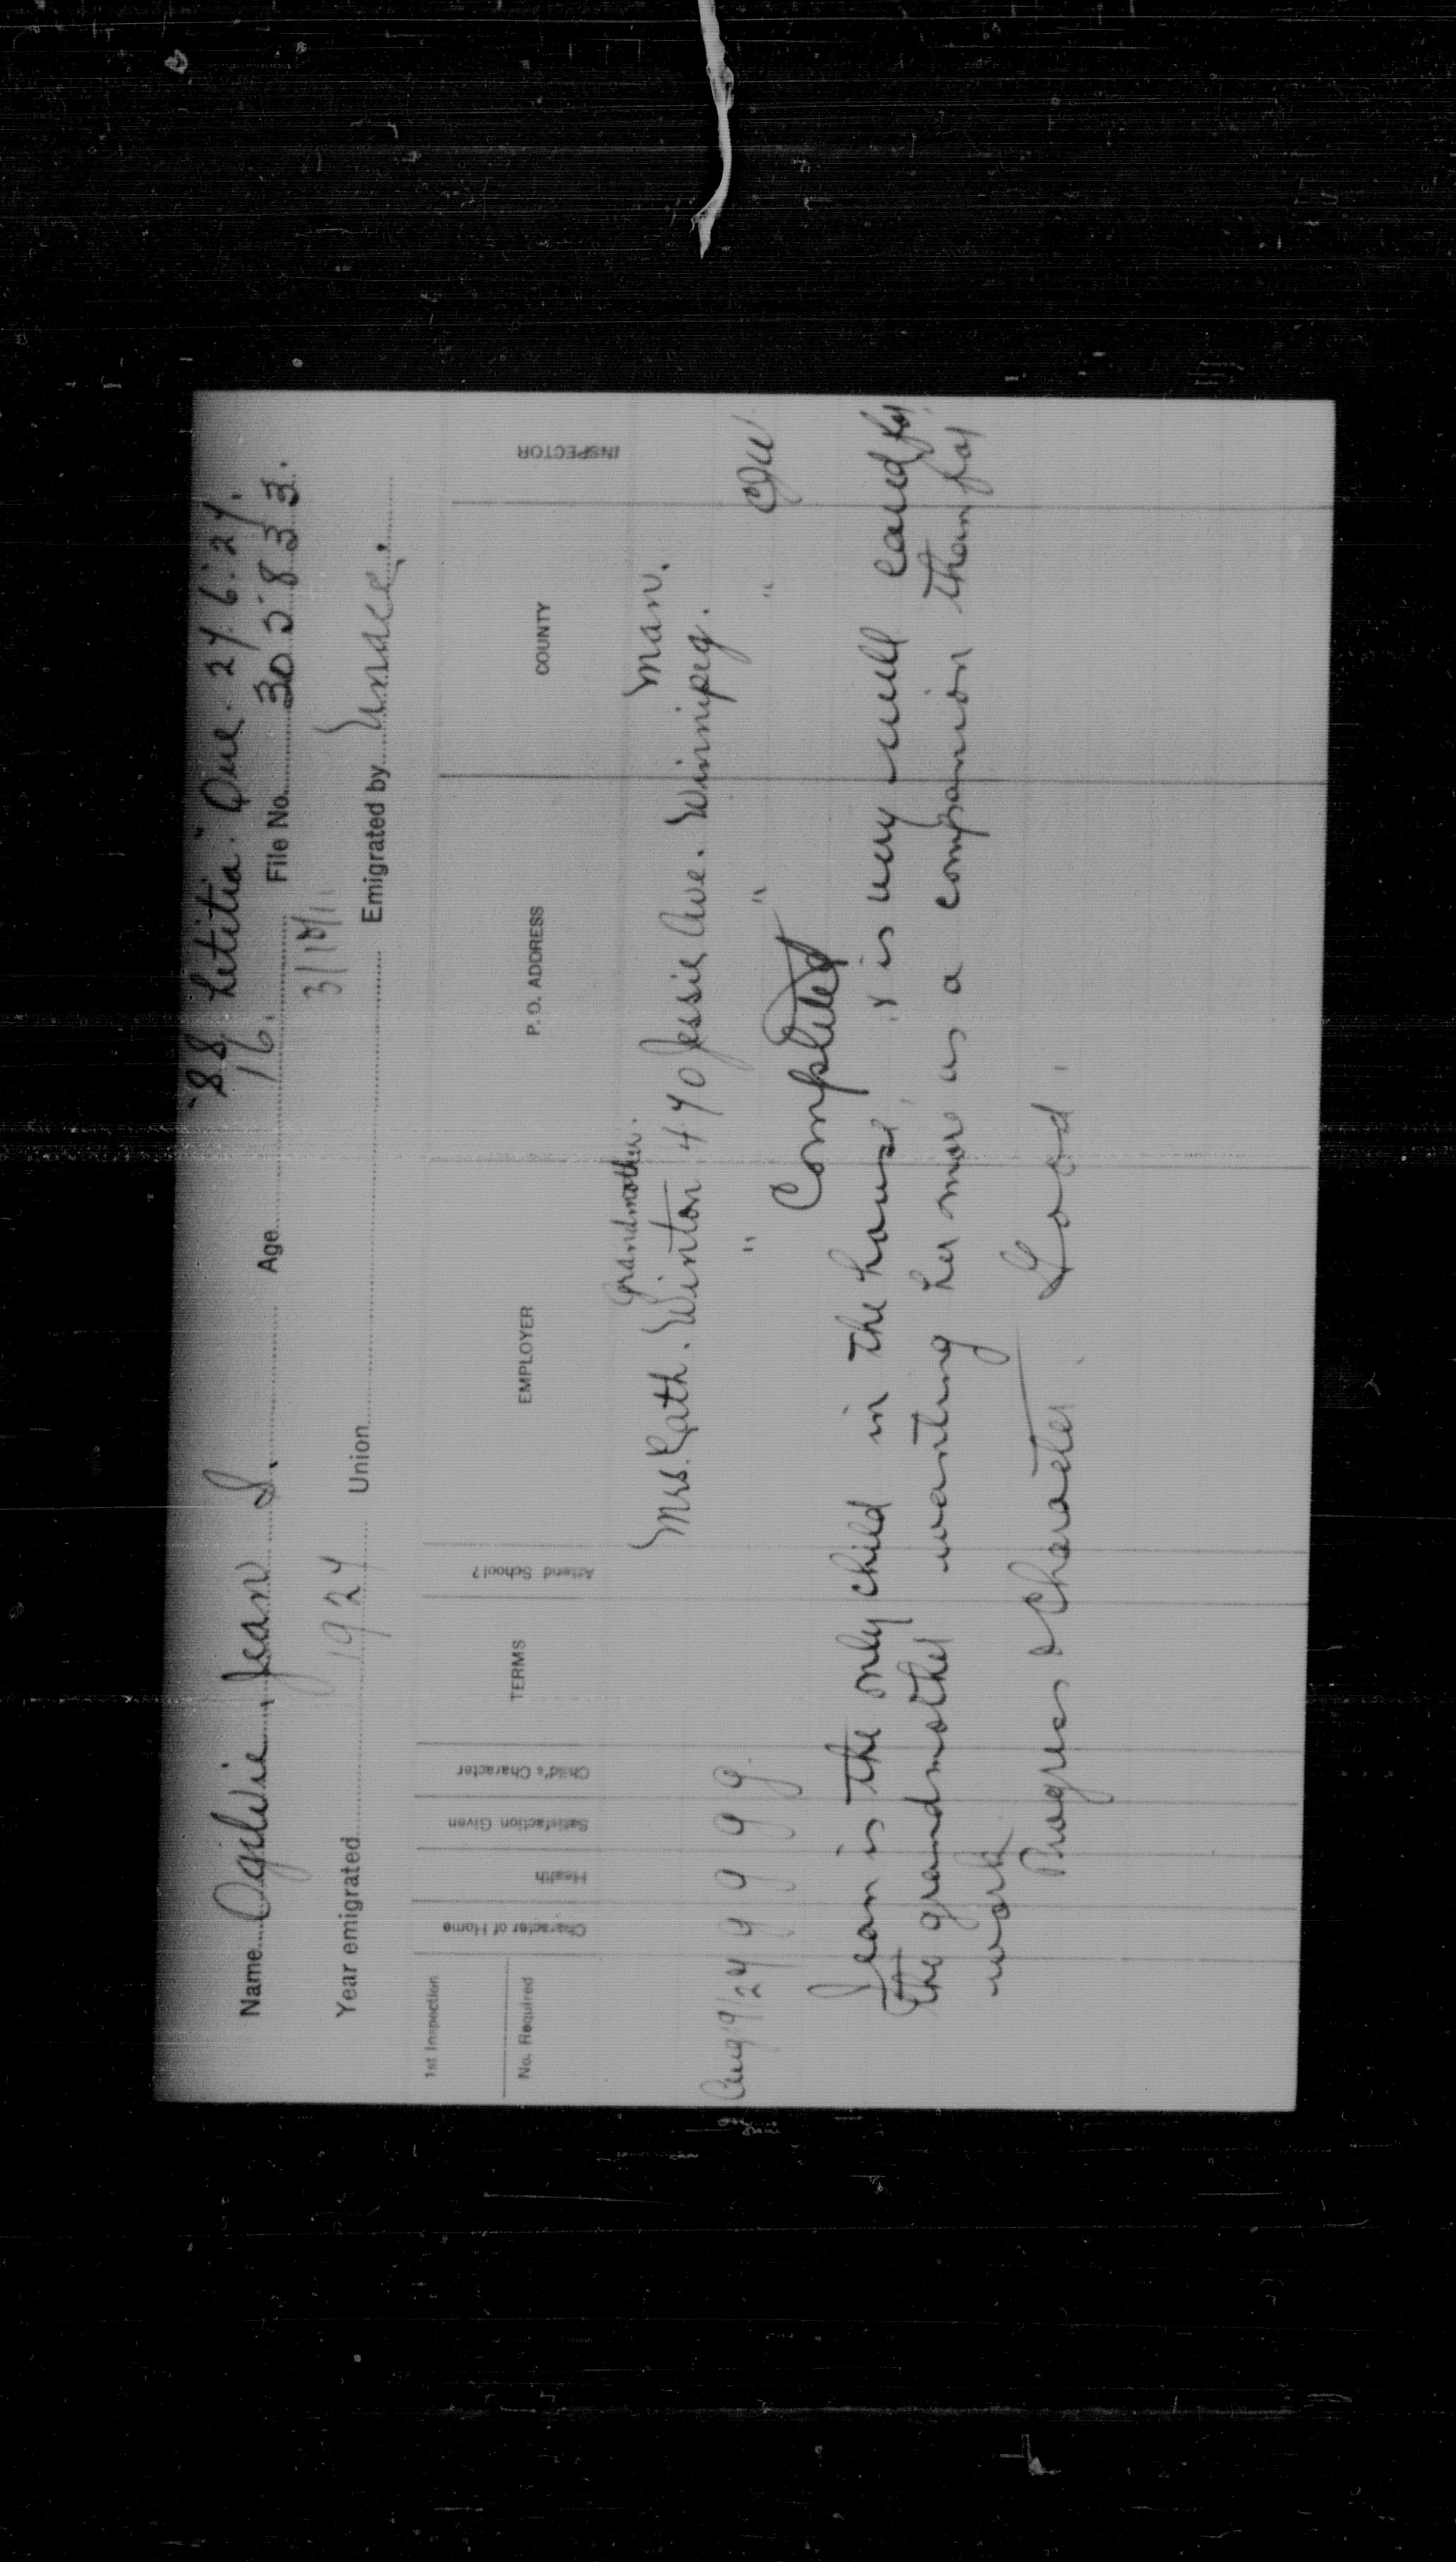 "SS Letitia" Que. 27.6.27.
Name Ogilvie, Jean S. Age 16. File No. 305833.
Year emigrated 1927 Union Emigrated by
1st Inspection
No. Required Character of Home Health Satisfaction Given Child's Character TERMS Attend School? EMPLOYER P. O. ADDRESS COUNTY INSPECTOR
Grandmother.
Mrs. Kath. Winton 470 Jessie Ave. Winnipeg. Man.
Aug 9/27 g g g g " " "
Completed
Jean is the only child in the house, & is very well cared for,
the grandmother wanting her more as a companion than for
work.
Progress & Character. Good.